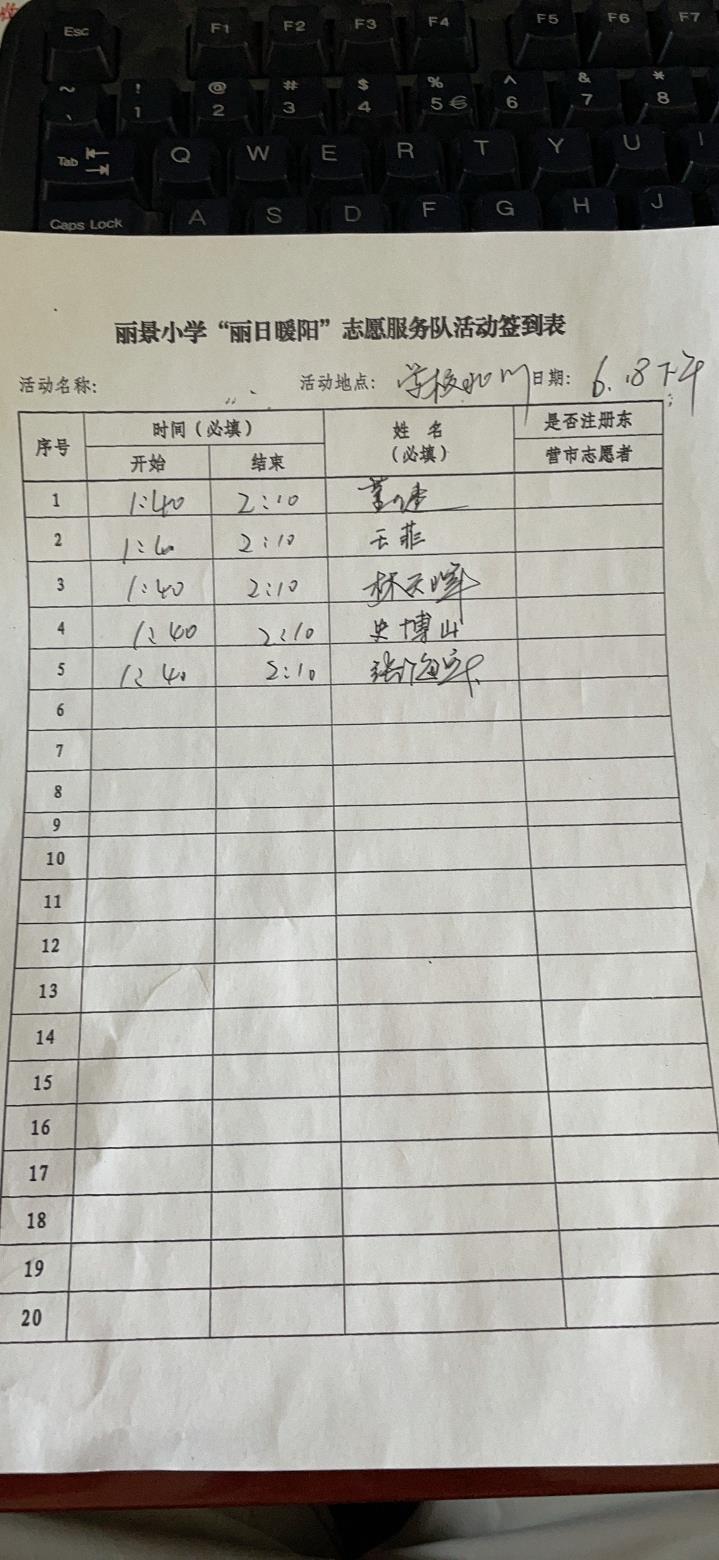 Esc F1 F2 F3 F4 F5 F6 F7
~ ! @ # $ % ^ & *
、 1 2 3 4 5 € 6 7 8
Tab Q W E R T Y U I
Caps Lock A S D F G H J
丽景小学“丽日暖阳”志愿服务队活动签到表
活动名称: 活动地点: 学校 门 日期: 6.18下午
序号 时间(必填) 姓 名 是否注册东
开始 结束 (必填) 营市志愿者
1 1:40 2:10
2 1:40 2:10 王菲
3 1:40 2:10 林天峰
4 1:40 2:10 史博山
5 1:40 2:10 张海军
6
7
8
9
10
11
12
13
14
15
16
17
18
19
20